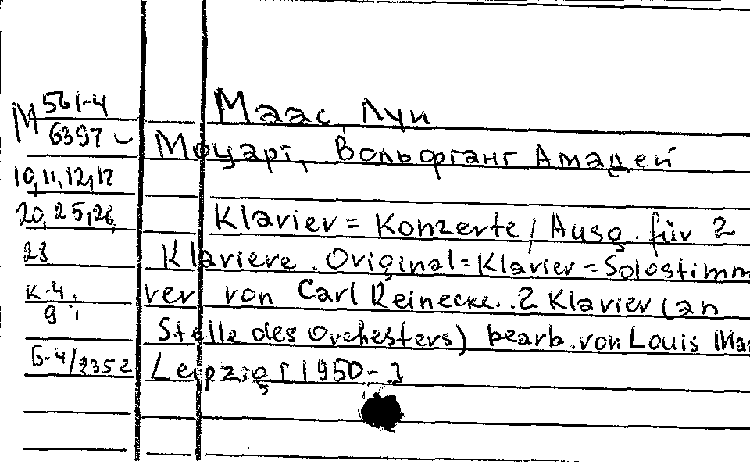 М 561-4
6397
Маас, Луи
Моцарт, Вольфганг Амадей
10, 11, 12, 17
20, 25, 26,
Klavier=Konzerte / Ausg. für 2
23
Klaviere. Original=Klavier=Solostimm
к. 4;
9
ver von Carl Reinecke. 2 Klavier (an
Stelle des Orchesters) bearb. von Louis Maa
Б-4/2352
Leipzig [1950-]